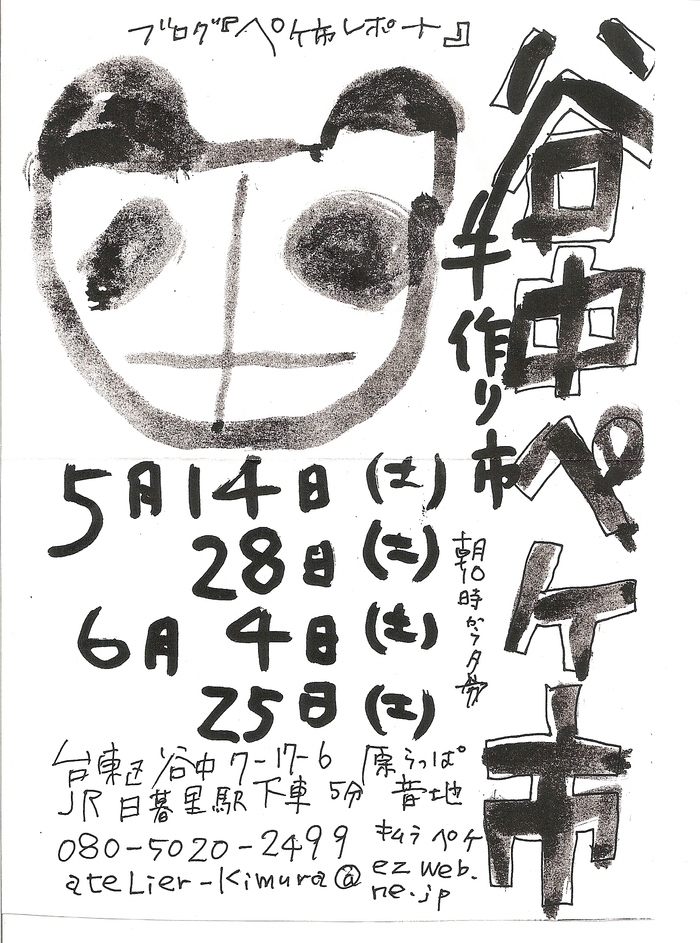 ブログ『ペケ市レポート』
谷中ペケ市
手作り市
5月14日(土)
28日(土)
6月4日(土)
25日(土)
朝10時から夕方
台東区谷中7-17-6 原らっぱ
JR日暮里駅下車5分 音地
080-5020-2499 キムラペケ
atelier-kimura@ezweb.
ne.jp